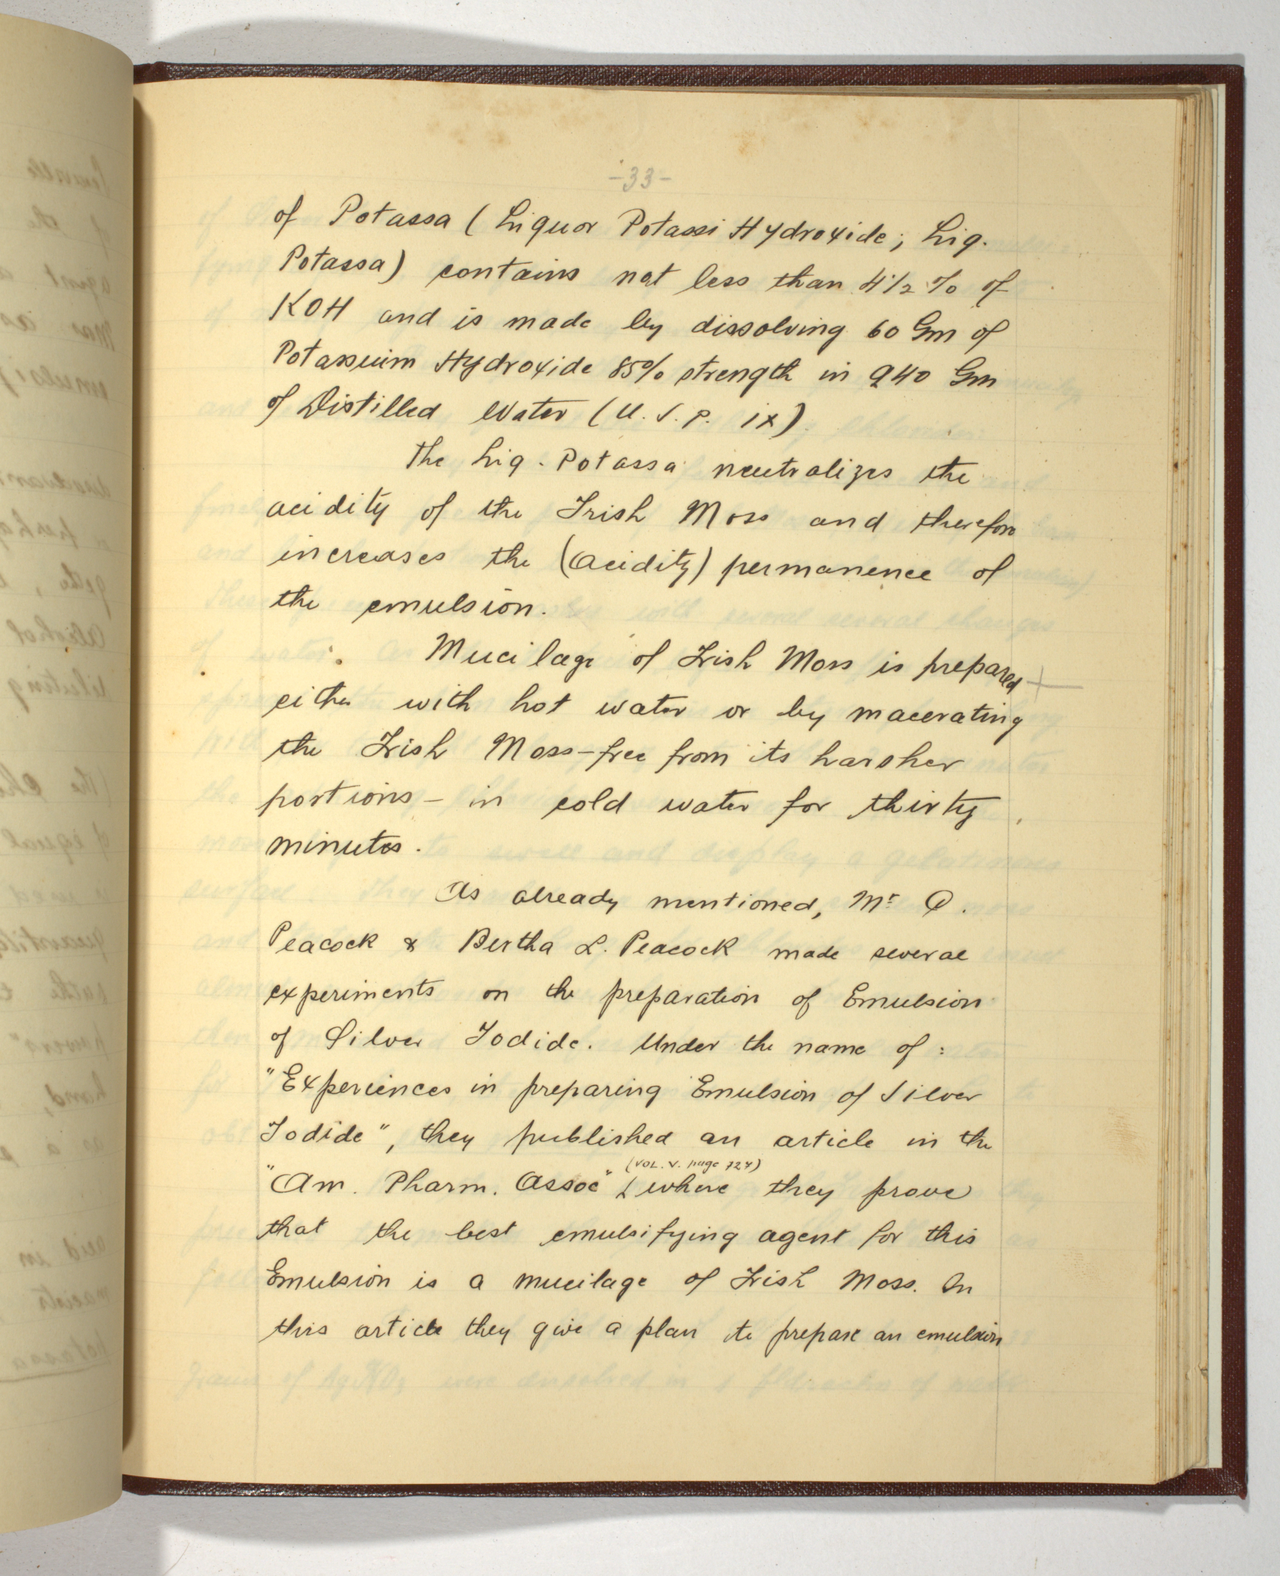 -33-
of Potassa ( Liquor Potassi Hydroxide; Liq.
Potassa) contains not less than 4 1/2 % of
KOH and is made by dissolving 60 Gm of
Potassium Hydroxide 85% strength in 940 Gm
of Distilled Water (U.S.P. ix)
The Liq. Potassa neutralizes the
acidity of the Irish Moss and therefore
increases the (acidity) permanence of
the emulsion.
Mucilage of Irish Moss is prepared
either with hot water or by macerating
the Irish Moss-free from its harsher
portions - in cold water for thirty
minutes.
As already mentioned, Mr
Peacock & Bertha L. Peacock made several
experiments on the preparation of Emulsion
of Silver Iodide. Under the name of :
"Experiences in preparing Emulsion of Silver
Iodide", they published an article in the
(VOL. V. page 727)
"Am. Pharm. Assoc" where they prove
that the best emulsifying agent for this
Emulsion is a mucilage of Irish Moss. In
this article they give a plan to prepare an emulsion